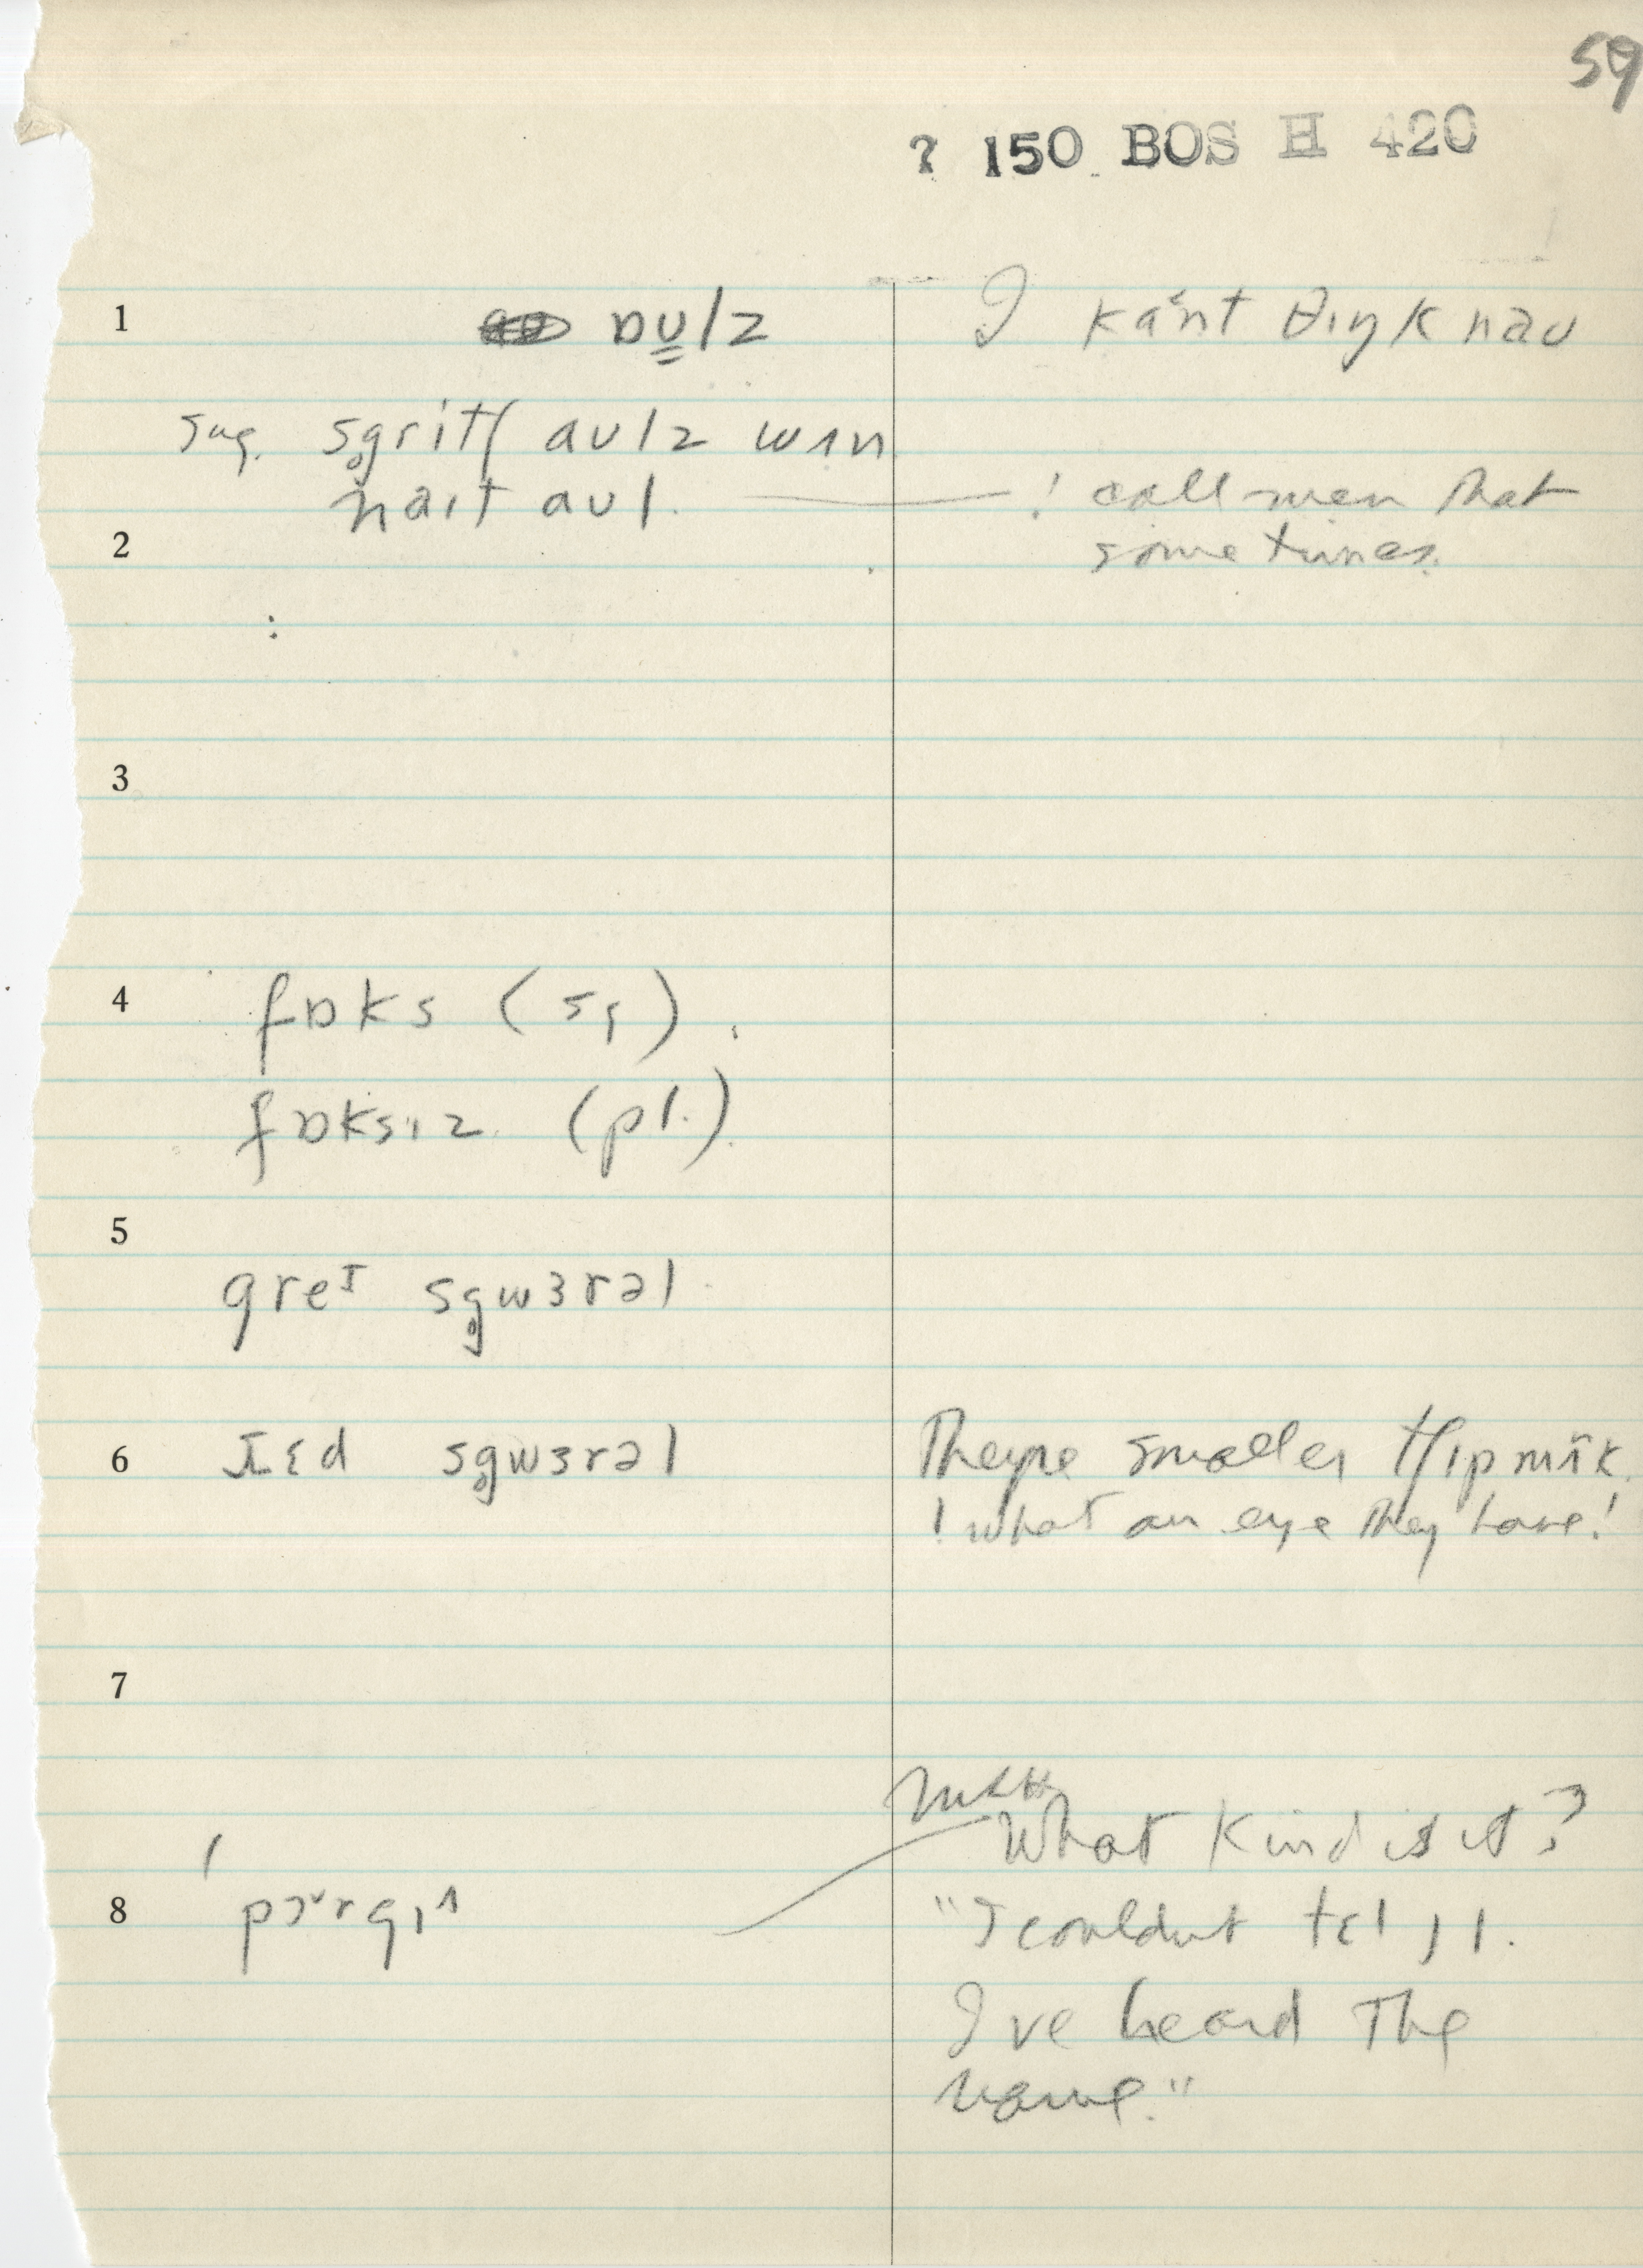 59
? 150 BOS H 420
1 ɒʊlz I kant θɪŋk naʊ
sug. sg̥ritʃ aʊlz wʌn
naɪt aʊl. ! call men that
2 sometimes.
3
4 fɒks (sg)
fɒksɪz (pl.)
5
greᴵ sg̥wɜrəl
6 ɹɛd sg̥wɜrəl They're smaller tʃɪpmʌ̃k
! what an eye they have!
7
What kind is it?
8 "I couldnt tɛl
I've heard The
name."